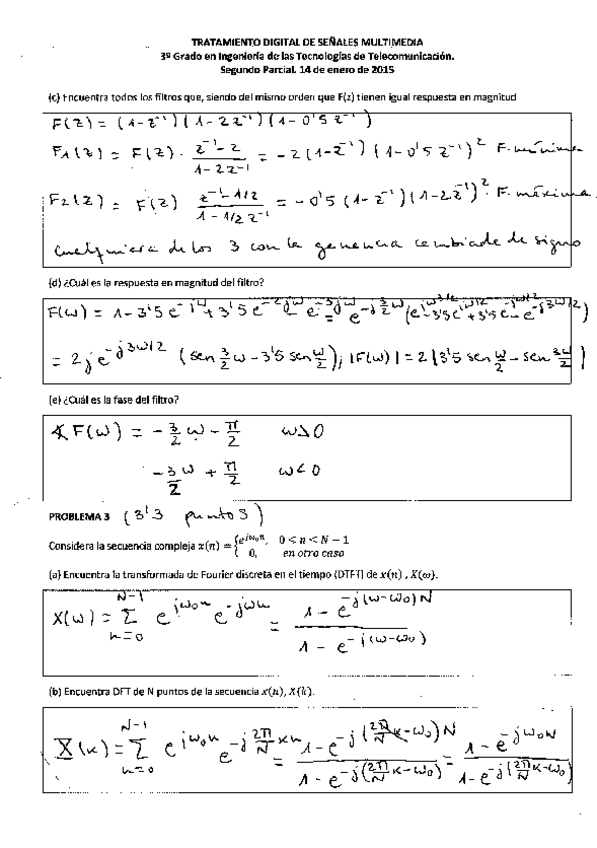 TRATAMIENTO DIGITAL DE SEÑALES MULTIMEDIA
3º Grado en Ingeniería de las Tecnologías de Telecomunicación.
Segundo Parcial. 14 de enero de 2015
(c) Encuentra todos los filtros que, siendo del mismo orden que F(z) tienen igual respuesta en magnitud
F(z) = (1-z⁻¹)(1-2z⁻¹)(1-0'5z⁻¹)
F₁(z) = F(z) · (z⁻¹-2)/(1-2z⁻¹) = -2(1-z⁻¹)(1-0'5z⁻¹)² F. mínima
F₂(z) = F(z) (z⁻¹-1/2)/(1-1/2z⁻¹) = -0'5(1-z⁻¹)(1-2z⁻¹)² F. máxima
Cualquiera de los 3 con la ganancia cambiada de signo
(d) ¿Cuál es la respuesta en magnitud del filtro?
F(ω) = 1-3'5e^{-jω}+3'5e^{-2jω}-e^{-3jω} = e^{-j3/2ω}(e^{jω3/2}-3'5e^{jω/2}+3'5e^{-jω/2}-e^{-j3ω/2})
= 2je^{-j3ω/2} (sen 3/2 ω - 3'5 sen ω/2); |F(ω)| = 2|3'5 sen ω/2 - sen 3ω/2|
(e) ¿Cuál es la fase del filtro?
∢F(ω) = -3/2 ω - π/2 ω>0
-3/2 ω + π/2 ω<0
PROBLEMA 3 (3'3 puntos)
Considera la secuencia compleja x(n) = {e^{jω₀n}, 0 < n < N − 1
0, en otro caso
(a) Encuentra la transformada de Fourier discreta en el tiempo (DTFT) de x(n) , X(ω).
X(ω) = Σ_{n=0}^{N-1} e^{jω₀n} e^{-jωn} = (1-e^{-j(ω-ω₀)N})/(1-e^{-j(ω-ω₀)})
(b) Encuentra DFT de N puntos de la secuencia x(n), X(k).
X(k) = Σ_{n=0}^{N-1} e^{jω₀n} e^{-j2π/N kn} = (1-e^{-j(2π/N k-ω₀)N})/(1-e^{-j(2π/N k-ω₀)}) = (1-e^{-jω₀N})/(1-e^{-j(2π/N k-ω₀)})